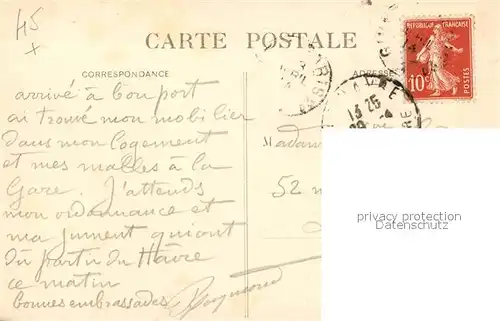 45
x
CARTE POSTALE
RÉPUBLIQUE FRANÇAISE
10c
CORRESPONDANCE
ADRESSE
arrivé à bon port
ai trouvé mon mobilier
dans mon logement
et mes malles à la
Gare. J'attends
mon ordonnance et
ma jument qui ont
dû partir du Hâvre
ce matin
bonnes embrassades
Raymond
13 25
Madame
52
privacy protection
Datenschutz